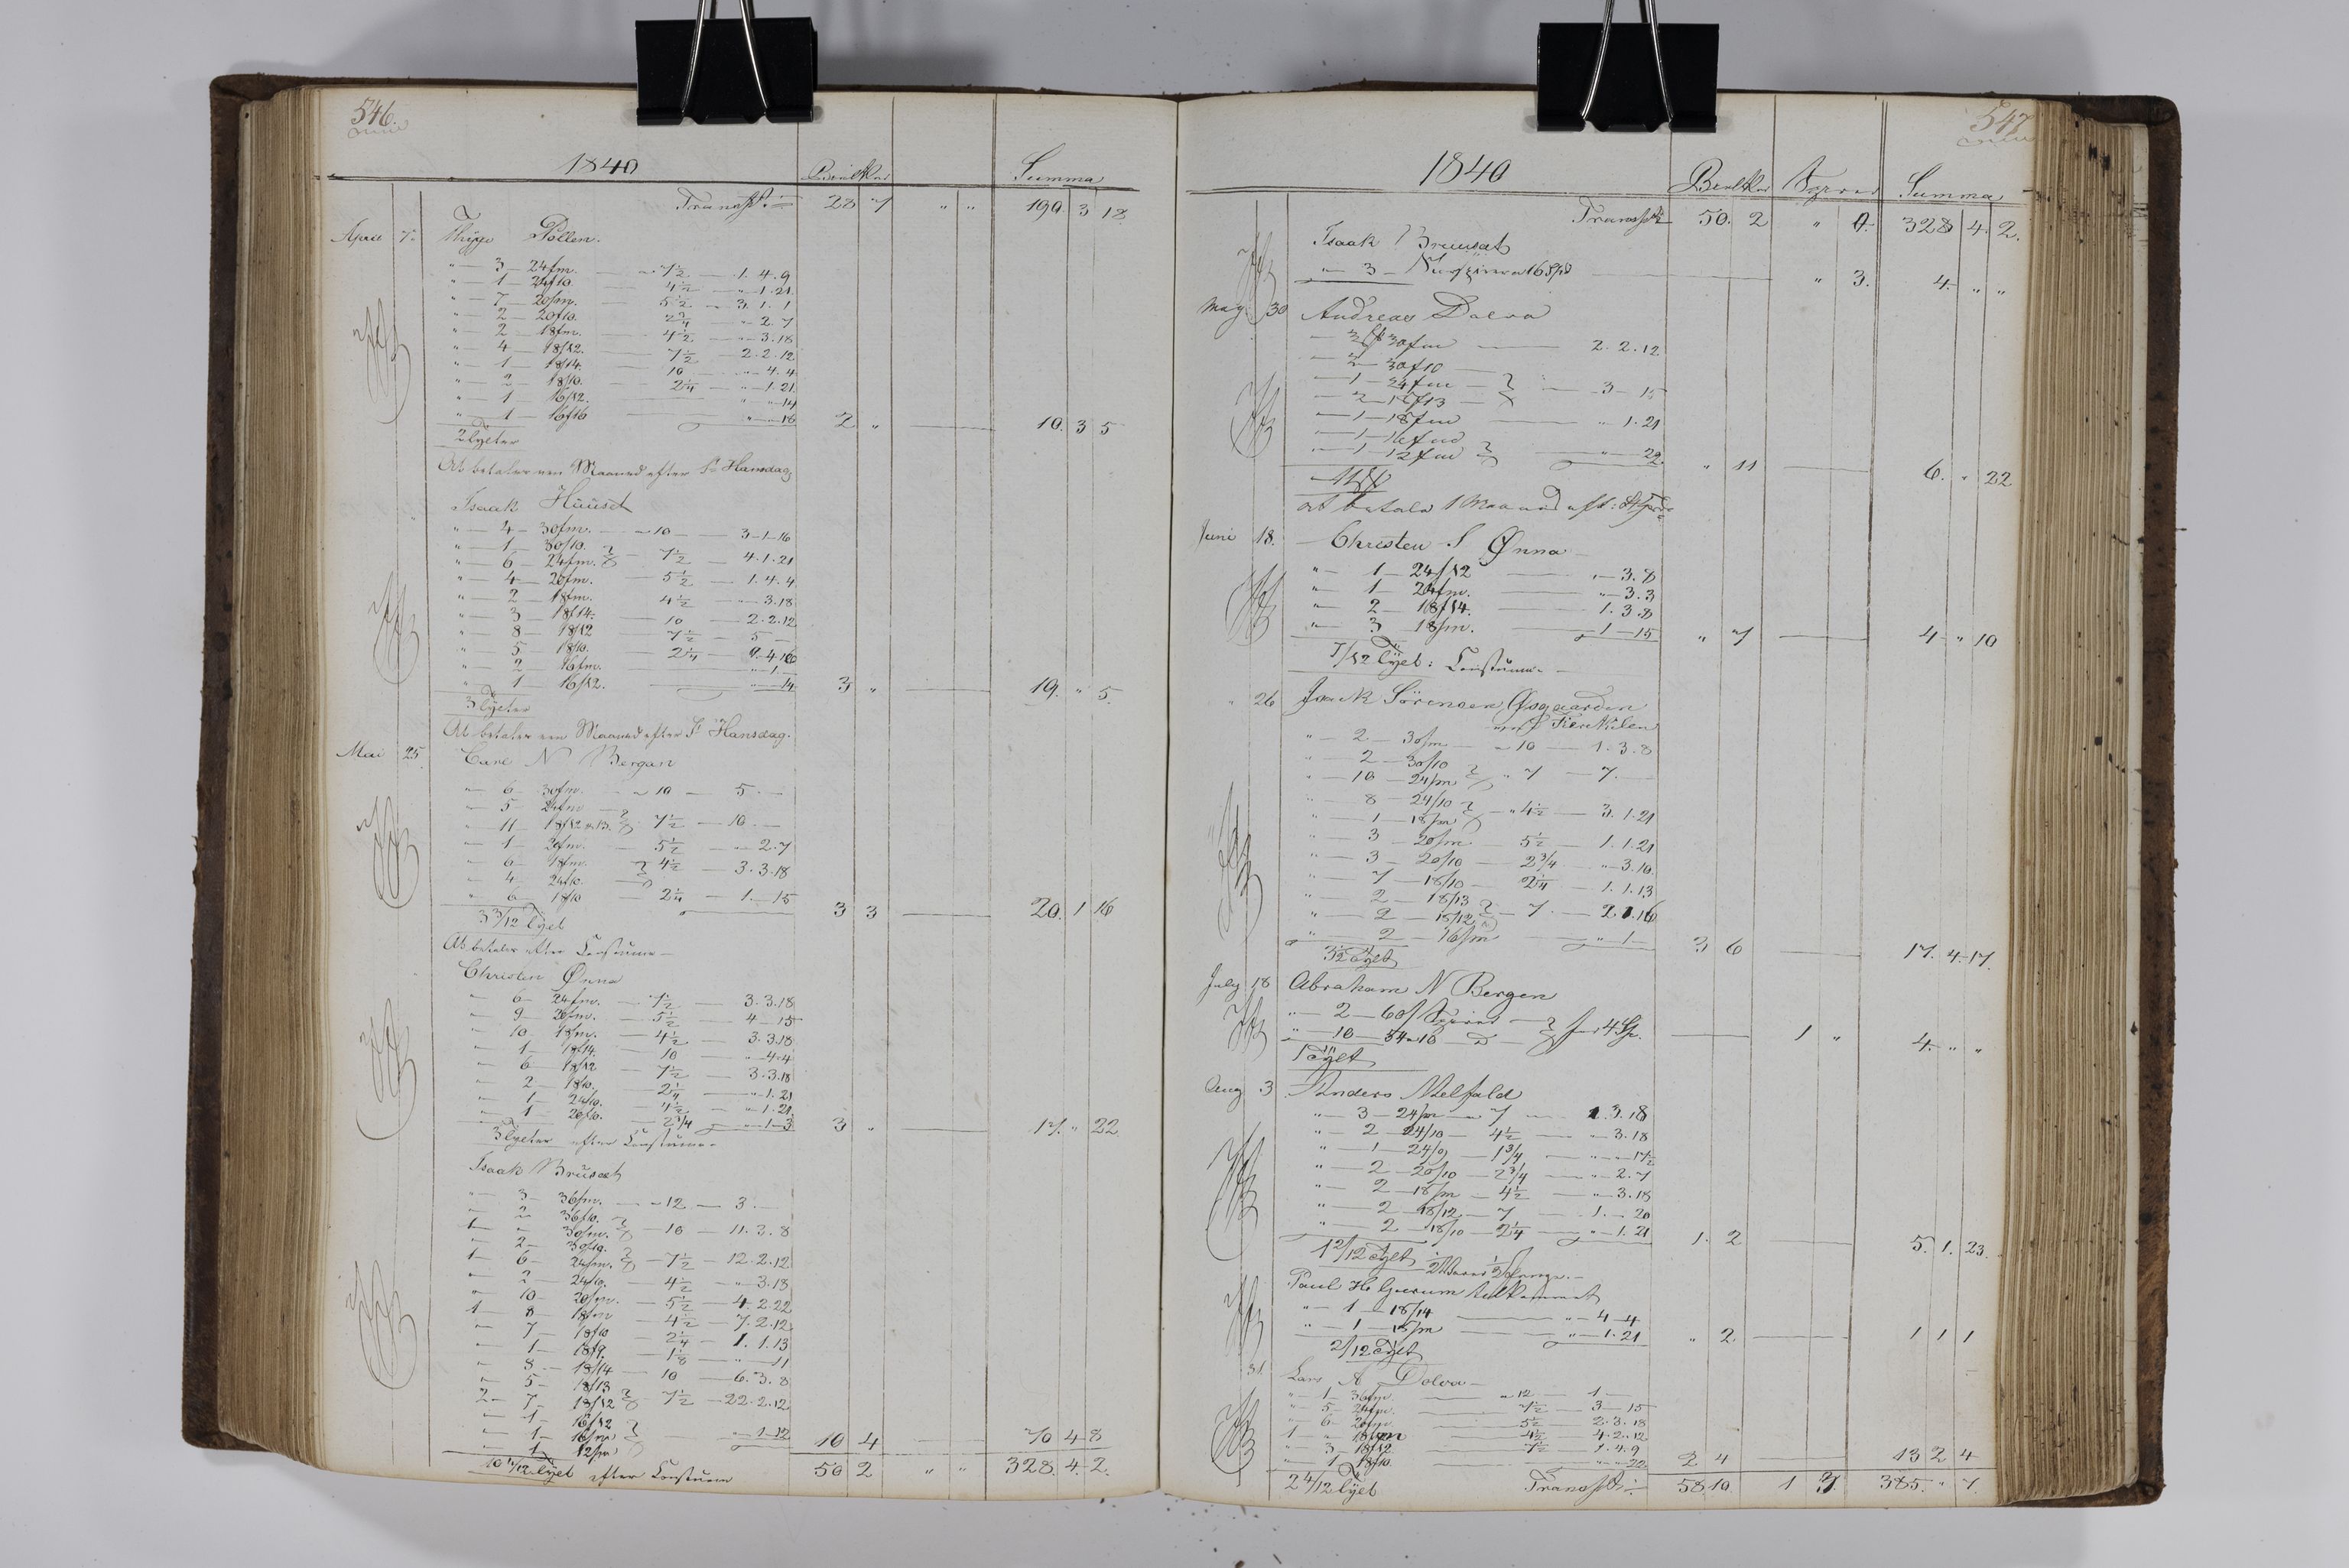 546.
1840 Summa
Transpt. 28 7 " " 190. 3 18
April 7. Thrygo Pollen.
" 3 - 24fm. - " 7½ - 1. 4. 9
" 1 - 24f10. - 4½ - " 1. 21
" 7 - 20fm. - 5½ - 3. 1. 1
" 2 - 20f10. 2¾ - " 2. 7
" 2 - 18fm. - 4½ - " 3. 18
" 4 - 18/12. - 7½ 2. 2. 12
" 1 - 18/14. - 10 - " 4. 4
" 2 - 18/10. - 2¼ - " 1. 21
" 1 - 16/12. " " 14
" 1 - 16f16 " " 18
2 " — 10. 3 5
2 Tylter
At betales een Maaned efter St Hansdag
Isaak Hauset
" 4 - 30fm. - " 10 - 3 - 1 - 16
" 1 - 30/10.
" 6 - 24fm. } - 7½ - 4. 1. 21
" 4 - 20fm. - 5½ - 1. 4. 4
" 2 - 18fm. 4½ - " 3. 18
" 3 - 18/14. - 10 - 2. 2. 12
" 8 - 18/12 - 7½ - 5 -
" 5 - 18/10. - 2¼ - " 4. 16
" 2 - 16fm. " 1 -
" 1 - 16/12. " " 14
3 " — 19. " 5.
3 Tylter
At betales een Maaned efter St Hansdag.
Mai 25. Carl N Bergan
" 6 - 30fm. - " 10 - 5. -
" 5 - 24fm
" 11 - 18/12 & 13. } 7½ - 10. -
" 1 - 20fm. - 5½ - " 2. 7
" 6 - 18fm. } 4½ - 3. 3. 18
" 4 - 24f10.
" 6 - 18/10 - 2¼ - 1. - 15
3 3 — 20. 1 16
3 3/12 Tylt
At betales efter
Christen Ønna
" 6 - 24fm. - 7½ - 3. 3. 18
" 9 - 20fm. - 5½ - 4 - 15
" 10 - 18fm. - 4½ - 3. 3. 18
" 1 - 18/14. - 10 - " 4. 4
" 6 - 18/12 - 7½ - 3. 3. 18
" 2 - 18/10. - 2¼ - " 1. 21
" 1 - 24/10. - 4½ - " 1. 21
" 1 - 20/10. - 2¾ - " 1 - 3
3 " — 17. " 22
3 Tylter efter
Isaak Bruset
" 3 - 36fm. - " 12 - 3 -
" 2 - 36/10.
1 - " 30fm. } - 10 - 11. 3. 8
" 2 - 30/10.
1 - 6 - 24fm. } - 7½ - 12. 2. 12
" 2 - 24/10. - 4½ - " 3. 18
" 10 - 20fm. - 5½ - 4. 2. 22
1 8 - 18fm - 4½ - 7. 2. 12
" 7 - 18/10 - 2¼ - 1. 1. 13
" 1 - 18/9. - 1⅛ - " 11
" 8 - 18/14 - 10 - 6. 3. 8
" 5 - 18/13
2 - 7 - 18/12 } 7½ - 22. 2. 12
" 1 - 16/12
" 1 - 16fm } " 1 - 12
" 1 - 12fm
10 4 — 70 4 8
10 4/12 Tylt efter 50 2 " " 328. 4. 2.
547
1840 Summa
Transpt 50. 2 " 0. 328 4. 2.
Isaak Bruusæt
" 3 - — " 3. 4. " "
May 30 Andreas Dolva
3 30fm — 2. 2. 12
2 - 30f10
1 - 24fm
2 - 18/13 — " 3 - 15
1 - 18fm — " 1. 21
1 - 16fm
1 - 12fm } — " 22.
" 11 — 6. " 22
11 St
at betale 1 Maaned
Juni 18. Christen S Ønna
" 1 - 24/12 — " 3. 8
" 1 - 24fm. — " 3. 3
" 2 - 18/14. — 1. 3. 8
" 3 - 18/m. — 1 - 15
" 7 — 4 " 10
7/12 Tylt:
" 26 Isack Sörensen Øsgaarden
" 2 - 30fm - " 10 - 1. 3. 8
" 2 - 30/10
" 10 - 24/m } " 7 - 7. -
" 8 - 24/10
" 1 - 18/m } " 4½ - 3. 1. 21
" 3 - 20/m - 5½ - 1. 1. 21
" 3 - 20/10 - 2¾ - " 3. 10
" 7 - 18/10 - 2¼ - 1. 1. 13
" 2 - 18/13
" 2 - 18/12 } - 7 - 2 1. 16
" 2 - 16/m — " 1 -
3 6 — 17. 4 17.
3½ Tylt
July 18 Abraham N Bergen
" 2 - 60f Sperrer } for 4 Sp.
" 10 - 34 " 10 D — 1 " 4. " "
1 Tylt
Aug 3 Anders Melfald
" 3 - 24/m - " 7 - 1. 3. 18
" 2 - 24/10 - 4½ - " 3. 18
" 1 - 24/9 - 1¾ - " " 17½
" 2 - 20/10 - 2¾ - " 2. 7
" 2 - 18/m - 4½ - " 3. 18
" 2 - 18/12 - 7 - 1. - 20
" 2 - 18/10 - 2¼ - " 1. 21
1. 2 — 5. 1. 23.
1 2/12 Tylt
Paul H.
" 1 - 18/14 — " 4 - 4
" 1 - 18/m — " 1. 21
" 2 — 1 1 1
2/12 Tylt
31. Lars A Dolva
" 1 - 36fm. — " 12 - 1 -
" 5 - 24fm. — 7½ - 3 - 15
" 6 - 20fm. — 5½ - 2. 3. 18
1 " 18fm — 4½ - 4. 2. 12
" 3 - 18/12 — 7½ - 1. 4. 9
" 1 - 18/10. — " " 22
2 4 — 13 2 4
2 4/12 Tylt Transpt 58 10. 1 3. 385. " 7.